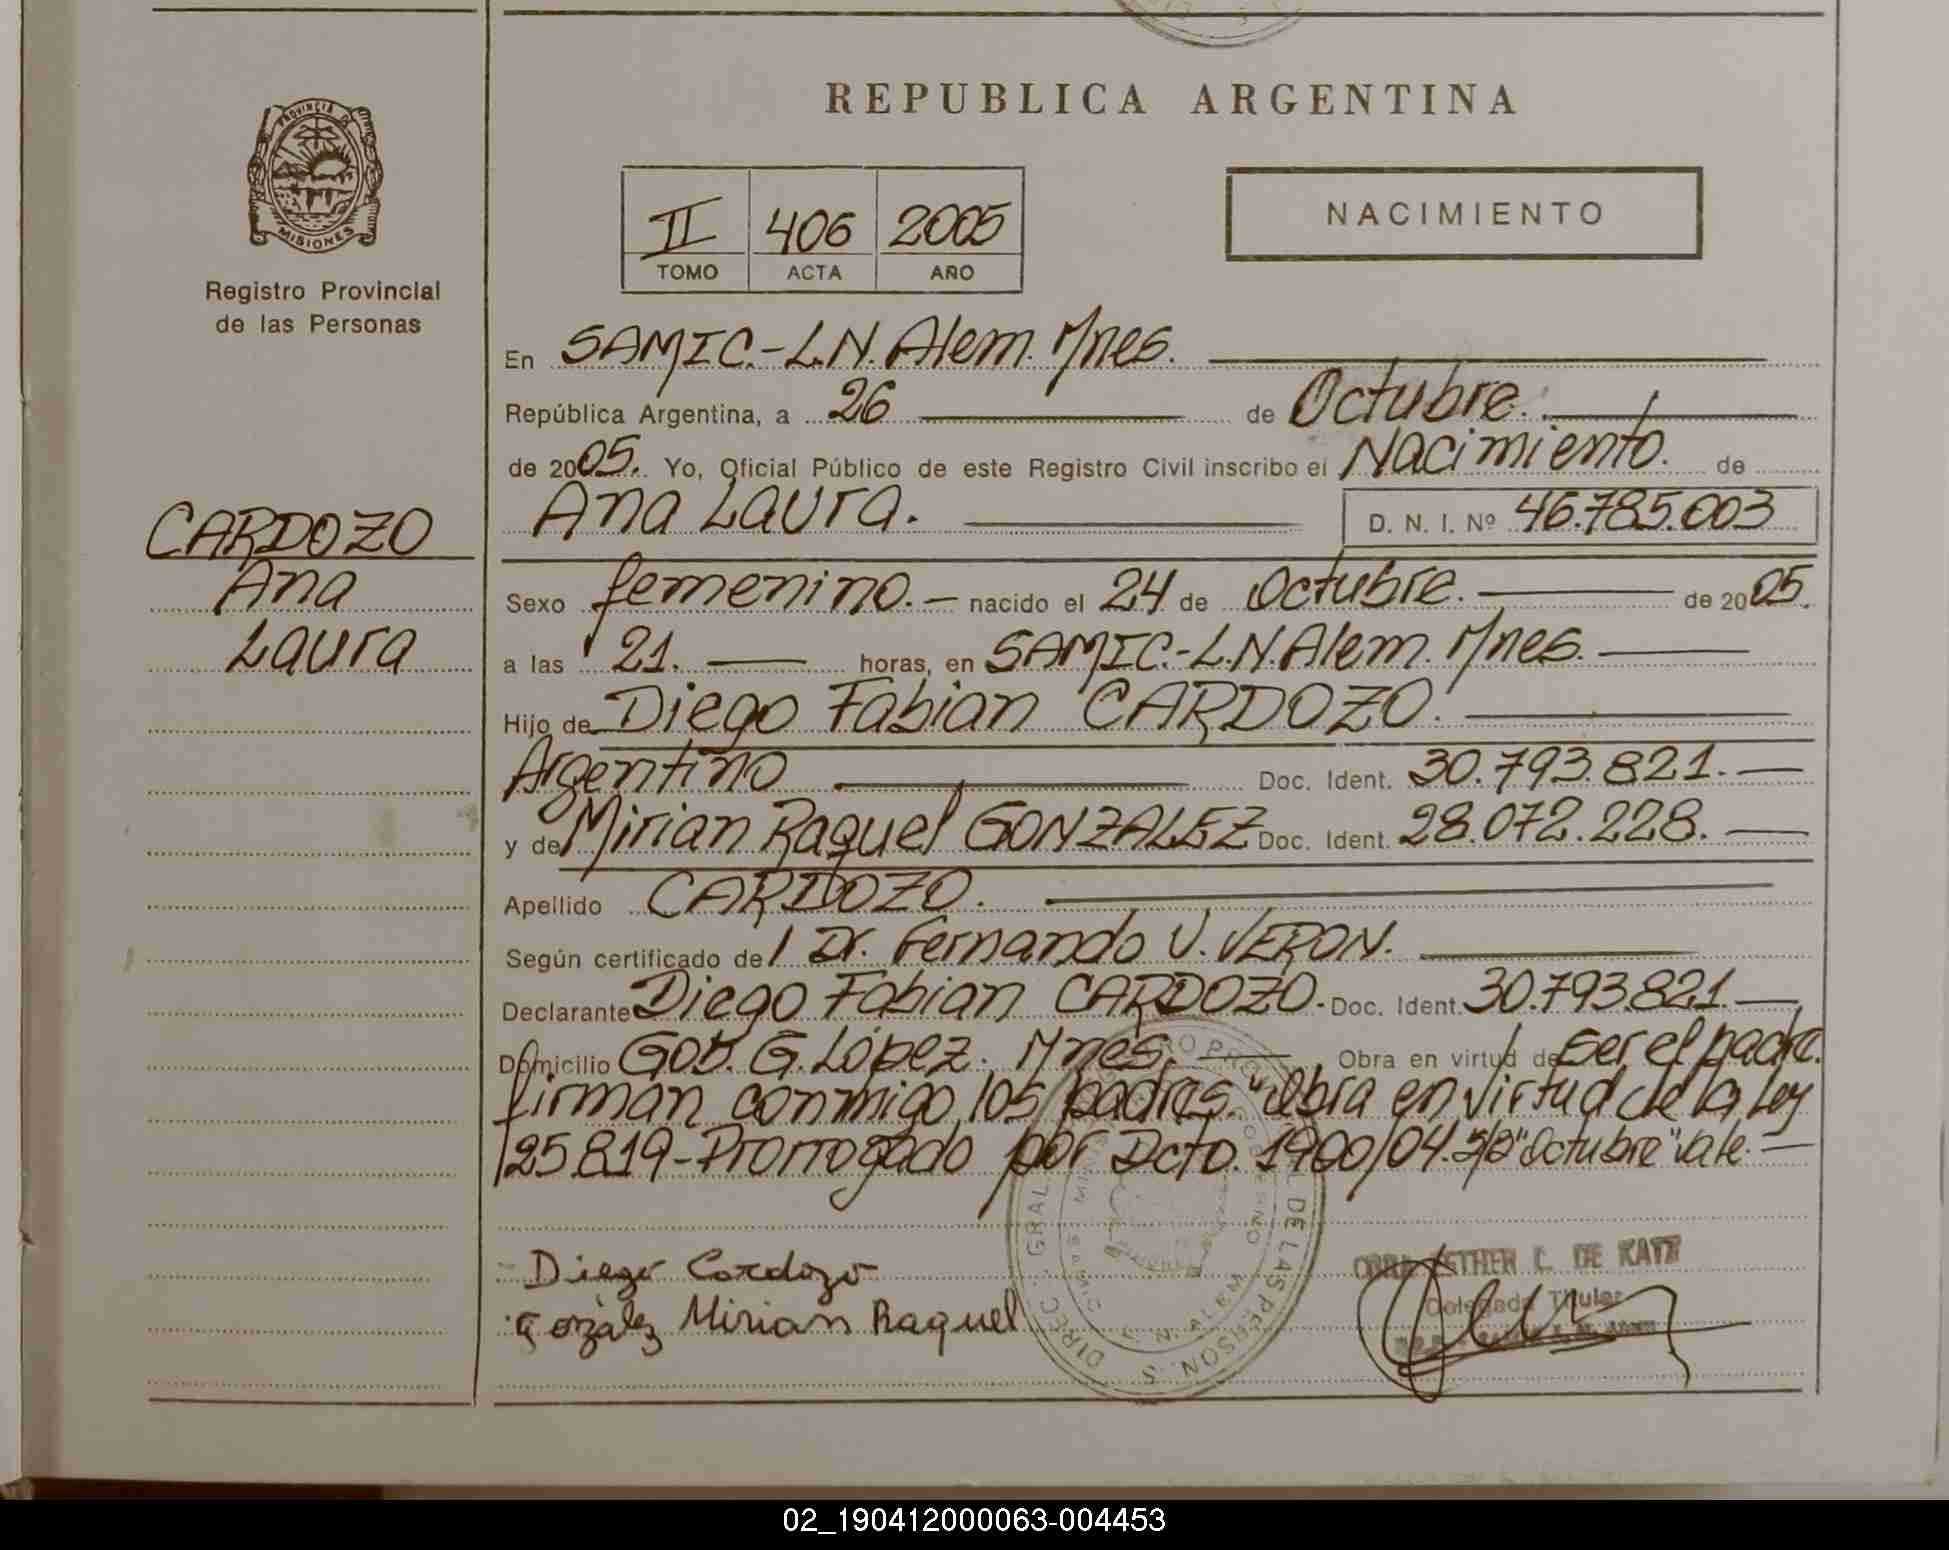 REPUBLICA ARGENTINA
PROVINCIA DE
MISIONES
Registro Provincial
de las Personas
II 406 2005
TOMO ACTA AÑO
NACIMIENTO
En SAMIC.-L.N. Alem. Mnes.
República Argentina, a 26 de Octubre.
de 2005. Yo, Oficial Público de este Registro Civil inscribo el Nacimiento. de
Ana Laura. D. N. I. Nº 46.785.003
CARDOZO
Ana
Laura
Sexo femenino. nacido el 24 de Octubre. de 2005.
a las 21. horas, en SAMIC.-L.N. Alem. Mnes.
Hijo de Diego Fabian CARDOZO.
Argentino Doc. Ident. 30.793.821.
y de Mirian Raquel GONZALEZ Doc. Ident. 28.072.228.
Apellido CARDOZO.
Según certificado de Dr. Fernando V. VERON.
Declarante Diego Fabian CARDOZO- Doc. Ident. 30.793.821.
Domicilio Gob. G. López. Mnes. Obra en virtud de ser el padre.
firman conmigo los padres. "Obra en virtud de la Ley
25.819-Prorrogado por Dcto. 1900/04. s/b "Octubre" vale.
Diego Cardozo
Gozález Mirian Raquel
ESTHER C. DE KATZ
Delegada Titular
DIREC. GRAL. DE LAS PERSONAS
L. N. ALEM
02_190412000063-004453